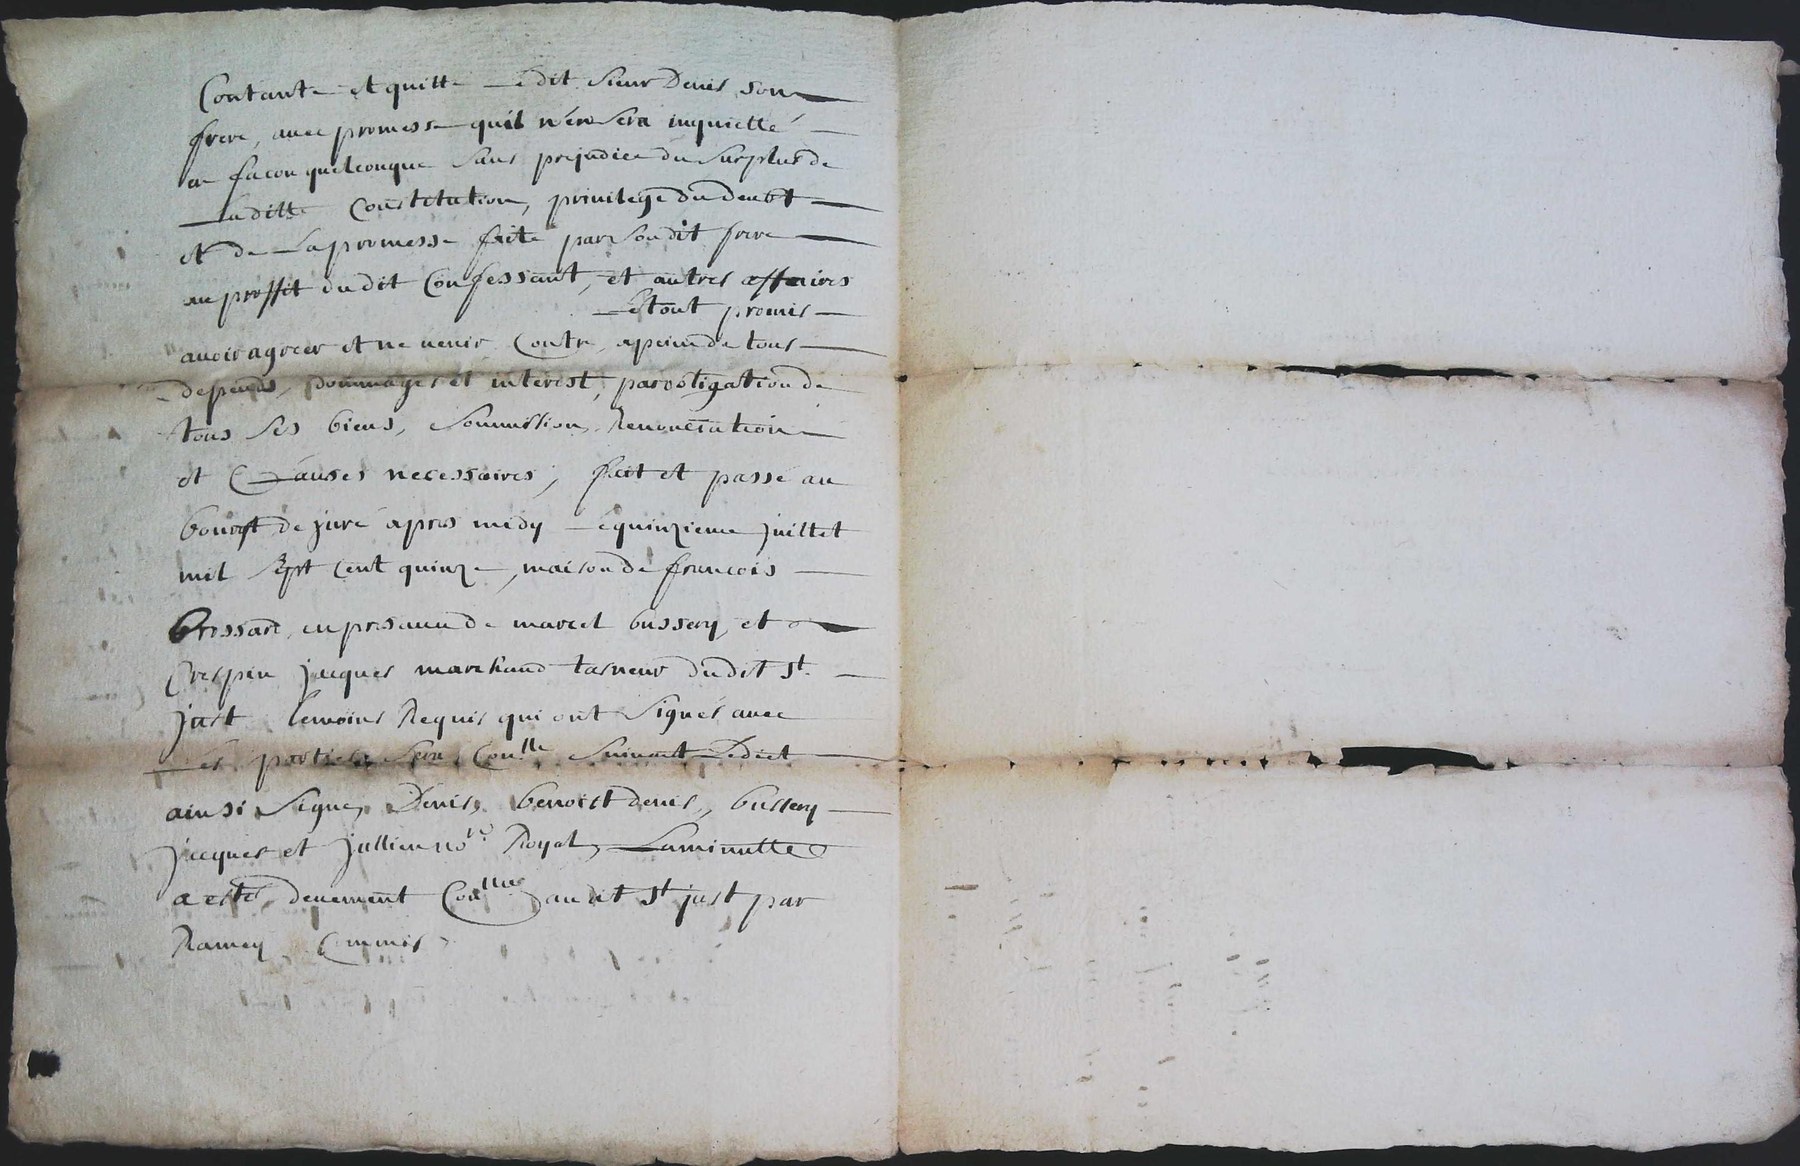 Contante et quitte ledit sieur Denis son
frere, avec promesse quil n'en sera inquietté
en facon quelconque sans prejudice du surplus de
laditte Constitution, privilege du deubt
et de la promesse faite par son dit frere
au proffit dudit Confessant, et autres affaires
le tout promis
avoir agreer et ne venir Contre, a peine de tous
depends, dommages et interest, par obligation de
tous ses biens, soumission, Renontiation
et Clauses necessaires, fait et passé au
bourgt de juré apres midy le quinzieme juillet
mil sept cent quinze, maison de francois
brossard, en presence de marcel bussery, et
Crespin jacques marchand tasneur dudit st.
just temoins Requis qui ont signés avec
les parties sera Conlle suivant ledict
ainsi signé, Denis, benoist denis, bussery
jacques et jullien no.re Royal, Laminutte
a esté deuement Conllée audit st just par
Ramey Commis